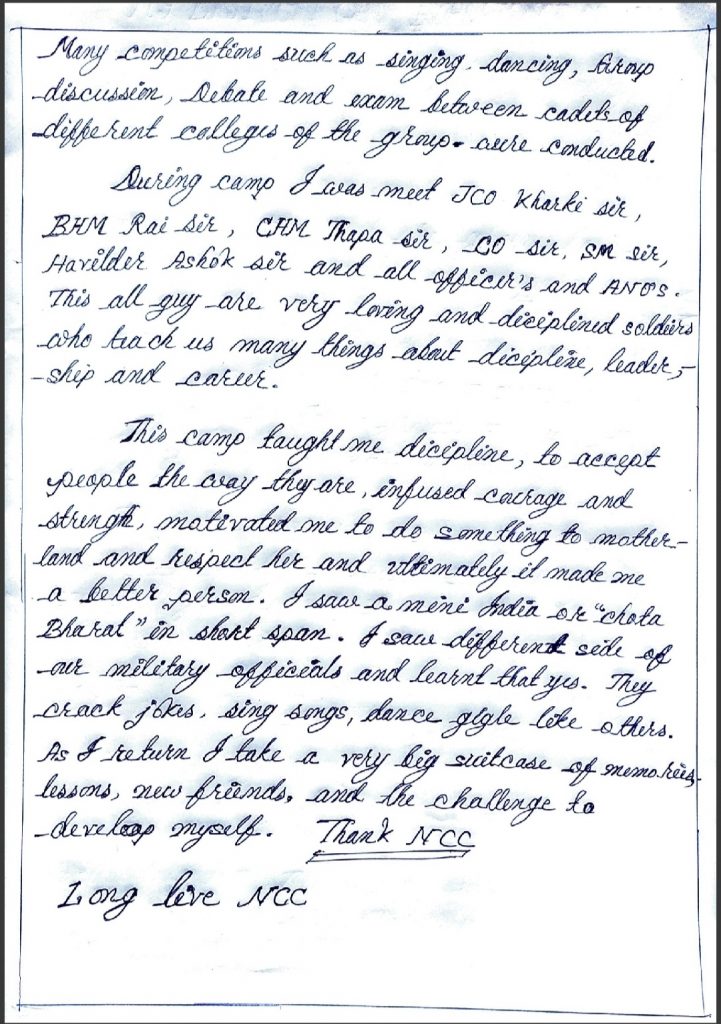 Many competitions such as singing, dancing, Group
discussion, Debate and exam between cadets of
different colleges of the group. were conducted.
During camp I was meet JCO Kharki sir,
BHM Rai sir, CHM Thapa sir, CO sir, SM sir,
Havilder Ashok sir and all officer's and ANO's.
This all guy are very loving and diciplined soldiers
who teach us many things about dicipline, leader,-
-ship and career.
This camp taught me dicipline, to accept
people the way they are, infused courage and
strength, motivated me to do something to mother-
land and respect her and ultimately it made me
a better person. I saw a mini India or "chota
Bharat" in short span. I saw different side of
our military officials and learnt that yes. They
crack jokes, sing songs, dance gigle like others.
As I return I take a very big suitcase of memories,
lessons, new friends, and the challenge to
develop myself. Thank NCC
Long live NCC